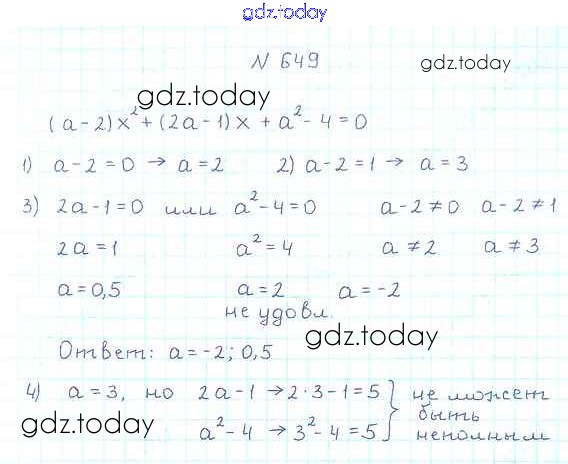 gdz.today
N 649
gdz.today
gdz.today
(a-2)x²+(2a-1)x + a²-4=0
1) a-2=0 → a=2 2) a-2=1 → a=3
3) 2a-1=0 или a²-4=0 a-2≠0 a-2≠1
2a=1 a²=4 a≠2 a≠3
a=0,5 a=2 a=-2
не удовл.
gdz.today
Ответ: a=-2; 0,5
4) a=3, но 2a-1→2·3-1=5 } не может
быть
gdz.today
a²-4 → 3²-4=5 неполным